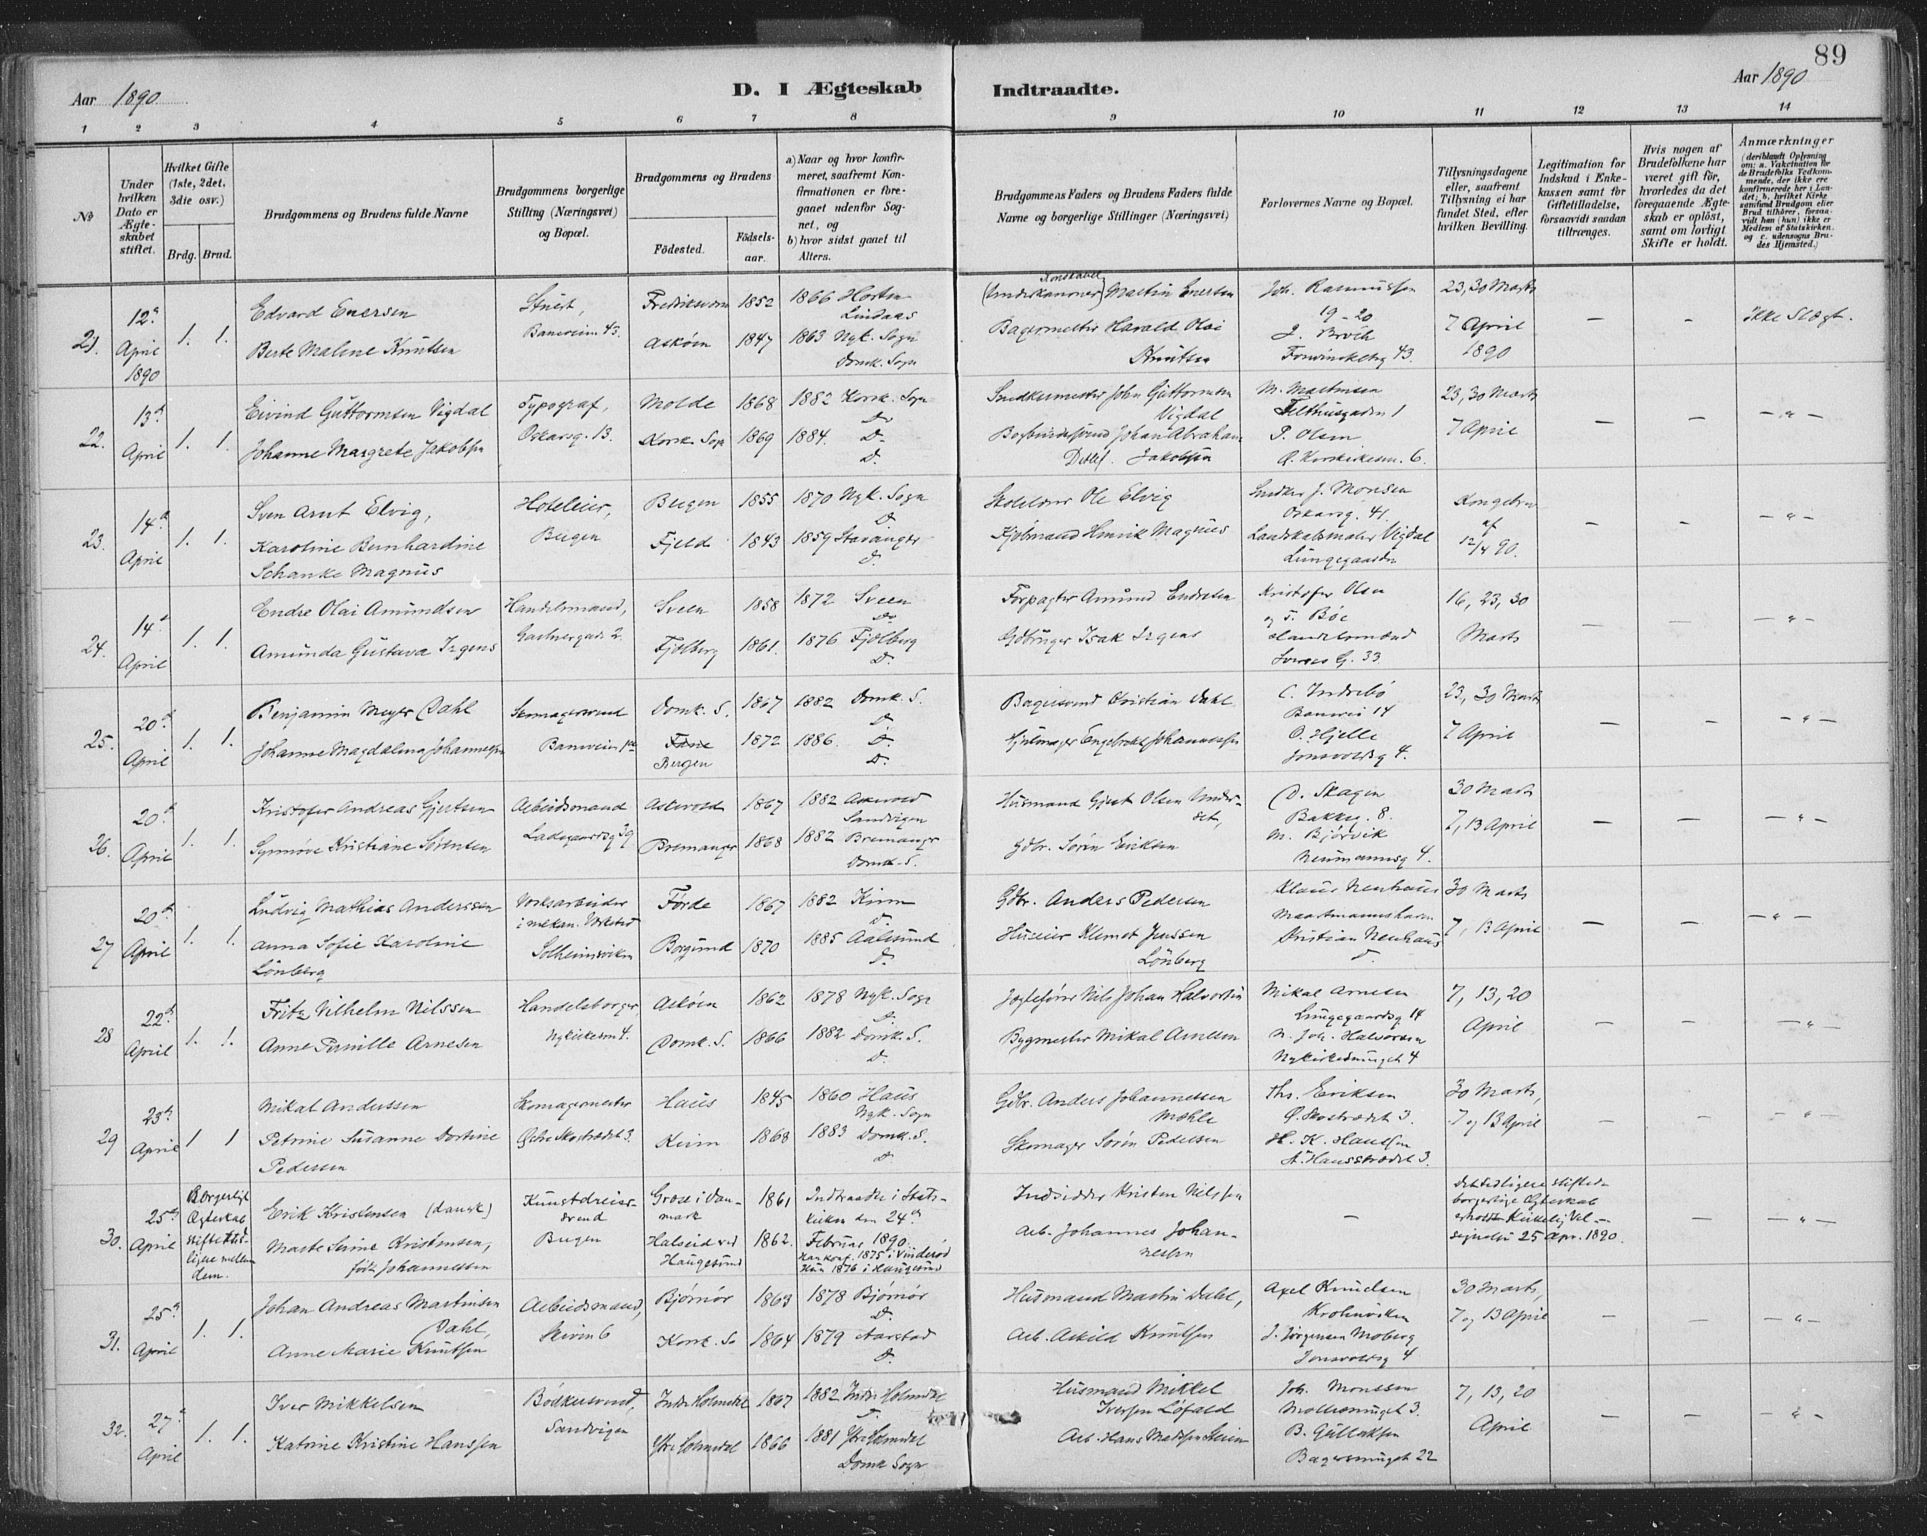 89
Aar 1890
D. I Ægteskab Indtraadte.
Aar 1890
1 2 3 4 5 6 7 8 9 10 11 12 13 14
No
Under hvilken Dato er Ægteskabet stiftet.
Hvilket Gifte (1ste, 2det, 3die osv.)
Brdg. Brud.
Brudgommens og Brudens fulde Navne
Brudgommens borgerlige Stilling (Næringsvei) og Bopæl.
Brudgommens og Brudens
Födested.
Födselsaar.
a) Naar og hvor konfirmeret, saafremt Konfirmationen er foregaaet udenfor Sognet, og
b) hvor sidst gaaet til Alters.
Brudgommens Faders og Brudens Faders fulde Navne og borgerlige Stillinger (Næringsvei)
Forlovernes Navne og Bopæl.
Tillysningsdagene eller, saafremt Tillysning ei har fundet Sted, efter hvilken Bevilling.
Legitimation for Indskud i Enkekassen samt for Giftetilladelse, forsaavidt saadan tiltrænges.
Hvis nogen af Brudefolkene har været gift før, hvorledes da det foregaaende Ægteskab er oplöst, samt om lovligt Skifte er holdt.
Anmærkninger
(deriblandt Oplysning om: a. Vakcination for de Brudefolks Vedkommende, der ikke ere konfirmerede her i Landet; b. hvilket Kirkesamfund Brudgom eller Brud tilhörer, forsaavidt han (hun) ikke er Medlem af Statskirken. og c. udensogns Brudes Hjemsted.)
21. 12te April 1890 1. 1.
Edvard Enersen
Berte Malene Knutsen
Stuert,
Baneveien 43.
Fredriksværn 1852 1866 Horten
Lindaas
Askøen 1847 1863 Nyk. Sogn
Domk. Sogn
Konstabel
(Underkanoner) Martin Enersen
Bagermester Harald Olai
Knutsen
Joh. Rasmussen
19-20
J. Broch
43.
23, 30 Marts
7 April
1890
— — Ikke Slægt.
22. 13de April 1. 1.
Eivind Guttormsen Vigdal
Johanne Margrete Jakobsen
Typograf,
Oskarsg. 13.
Molde 1868 1882 Korsk. Sogn
D.
Korsk. Sogn 1869 1884. D.
D.
Snedkermester John Guttormsen
Vigdal
Bogbindersvend Johan Abraham
Detlef Jakobsen
M. Martinsen
Felthusgaden 1
P. Olsen
6.
23, 30 Marts
7 April
— — —"—
23. 14de April 1. 1.
Sven Arnt Elvig,
Karoline Bernhardine
Schanke Magnus
Hoteleier,
Bergen
Bergen 1855 1870 Nyk. Sogn
D.
Fjeld 1843 1859 Stavanger
D.
Skolelærer Ole Elvig
Kjøbmand Henrik Magnus
Snedker J. Monsen
Oskarsg. 41.
Landskabsmaler Vigdal
Lungegaarden
Kongebrev
af
12/4 90.
— — —"—
24. 14de April 1. 1.
Endre Olai Amundsen
Amunda Gustava Irgens
Handelsmand,
2.
Sveen 1858 1872 Sveen
D.
Fjelberg 1861. 1876 Fjelberg
D.
Forpagter Amund Endresen
Gdbruger Isak Irgens
Kristofer Olsen
og T. Böe
Handelsmænd
Sverres G. 33
16, 23, 30
Marts
— — —"—
25. 20de April 1. 1.
Benjamin Meyer Dahl
Johanne Magdalena Johannesen
Skomagersvend
Baneveien
Domk. S. 1867 1882 Domk. S.
D.
Fane
Bergen 1872 1886. D.
D.
Bagersvend Kristian Dahl
Hjulmager Engebrekt Johannessen
C. Indrebö
Banevei 14
O. Hjelle
Jonsvoldsg 4.
23, 30 Marts
7 April
— — —"—
26. 20de April 1. 1.
Kristofer Andreas Gjertsen
Synnöve Kristiane Sörensen
Arbeidsmand
Ladegaardsg 39
Askevold 1867 1882 Askevold
Sandvigen
Bremanger 1868 1882 Bremanger
Domk. S.
Husmand Gjert Olsen
Gdbr. Sören Eriksen
D. Skagen
Bakkeg. 8.
M. Bjørvik
Neumannsg 4.
30 Marts
7, 13 April
— — —"—
27 20de April 1. 1.
Ludvig Mathias Anderssen
Anna Sofie Karoline
Lönberg
Verksarbeider
i mekan. Verksted
Solheimsviken
Førde 1867 1882 Kinn
D.
Borgund 1870 1885 Aalesund
D.
Gdbr. Anders Pedersen
Huseier Klemet Jenssen
Lönberg
Klaus Neuhaus
Kristian Neuhaus
D.
30 Marts
7, 13 April
— — —"—
28 22de April 1. 1.
Fritz Vilhelm Nilssen
Anne Pernille Arnesen
Handelsborger
4.
Askøen 1862 1878 Nyk. Sogn
D.
Domk. S. 1866 1882 Domk. S.
D.
Jægtefører Nils Johan Halvorsen
Bygmester Mikal Arnesen
Mikal Arnesen
Lungegaardsg 14
N. Joh. Halvorsen
Nykirkesmuget 4
7, 13, 20
April
— — —"—
29 23de April 1 1
Mikal Anderssen
Petrine Susanne Dortine
Pedersen
Skomagermester
Øvre Skostrædet 3.
Haus 1845 1860 Haus
Nyk. Sogn
Kinn 1868 1883 Domk. S.
D.
Gdbr. Anders Johannessen
Mæhle
Skomager Sören Pedersen
Ths. Eriksen
Ø. Skostrædet 3.
H. K. Hansen
3.
30 Marts,
7 og 13 April
— — —"—
30. 25de April
Borgerligt
Ægteskab
stiftet tidligere mellem dem.
Erik Kristensen (dansk)
Marte Serine Kristensen,
født Johannessen
Kunstdreiersvend
Bergen
Grose i Danmark 1861
Halseid ved
Haugesund 1862.
Indtraadte i Statskirken den 24de
Februar 1890.
Han konf. 1875 i Vinderød
Hun 1876 i Haugesund
Indsidder Kristen Nilssen
Arb. Johannes Johannessen
—
Det tidligere stiftede
borgerlige Ægteskab
erholdt Kirkelig Velsignelse 25 Apr. 1890.
— —"—
31. 25de April 1. 1.
Johan Andreas Martinsen
Dahl,
Anne Marie Knutsen
Arbeidsmand,
Skiven 6
Bjørnør 1863 1878 Bjørnør
D.
Korsk. So 1864 1879 Aarstad
D.
Husmand Martin Dahl,
Arb. Askild Knutsen
Axel Knudsen
Krohnviken
J. Jörgensen Moberg
Jonsvoldsg 4
30 Marts,
7 og 13 April
— — —"—
32. 27de April 1. 1.
Iver Mikkelsen
Katrine Kristine Hanssen
Bödkersvend,
Sandvigen
Indre Holmedal 1867 1882 Indre Holmedal
D.
Ytre Holmedal 1866 1881 Ytre Holmedal
Domk Sogn
Husmand Mikkel
Iversen Løfald
Arb. Hans Madssen Steien
Joh. Monssen
3.
B. Gullaksen
Bagersmuget 22
7, 13, 20
April
— — —"—